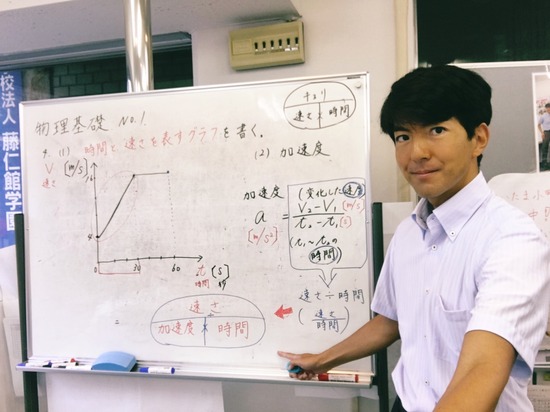 校法人 藤仁館学園
物理基礎 No.1
4. (1) 時間と速さを表すグラフを書く。
V [m/s]
速さ
16
4
0
30
60
t [s]
時間
(2) 加速度
きょり
速さ × 時間
加速度
a = V₂-V₁ / t₂-t₁
[m/s²]
(変化した速度
[m/s]
[s]
時間
速さ÷時間
(速さ/時間)
速さ
加速度 × 時間
=